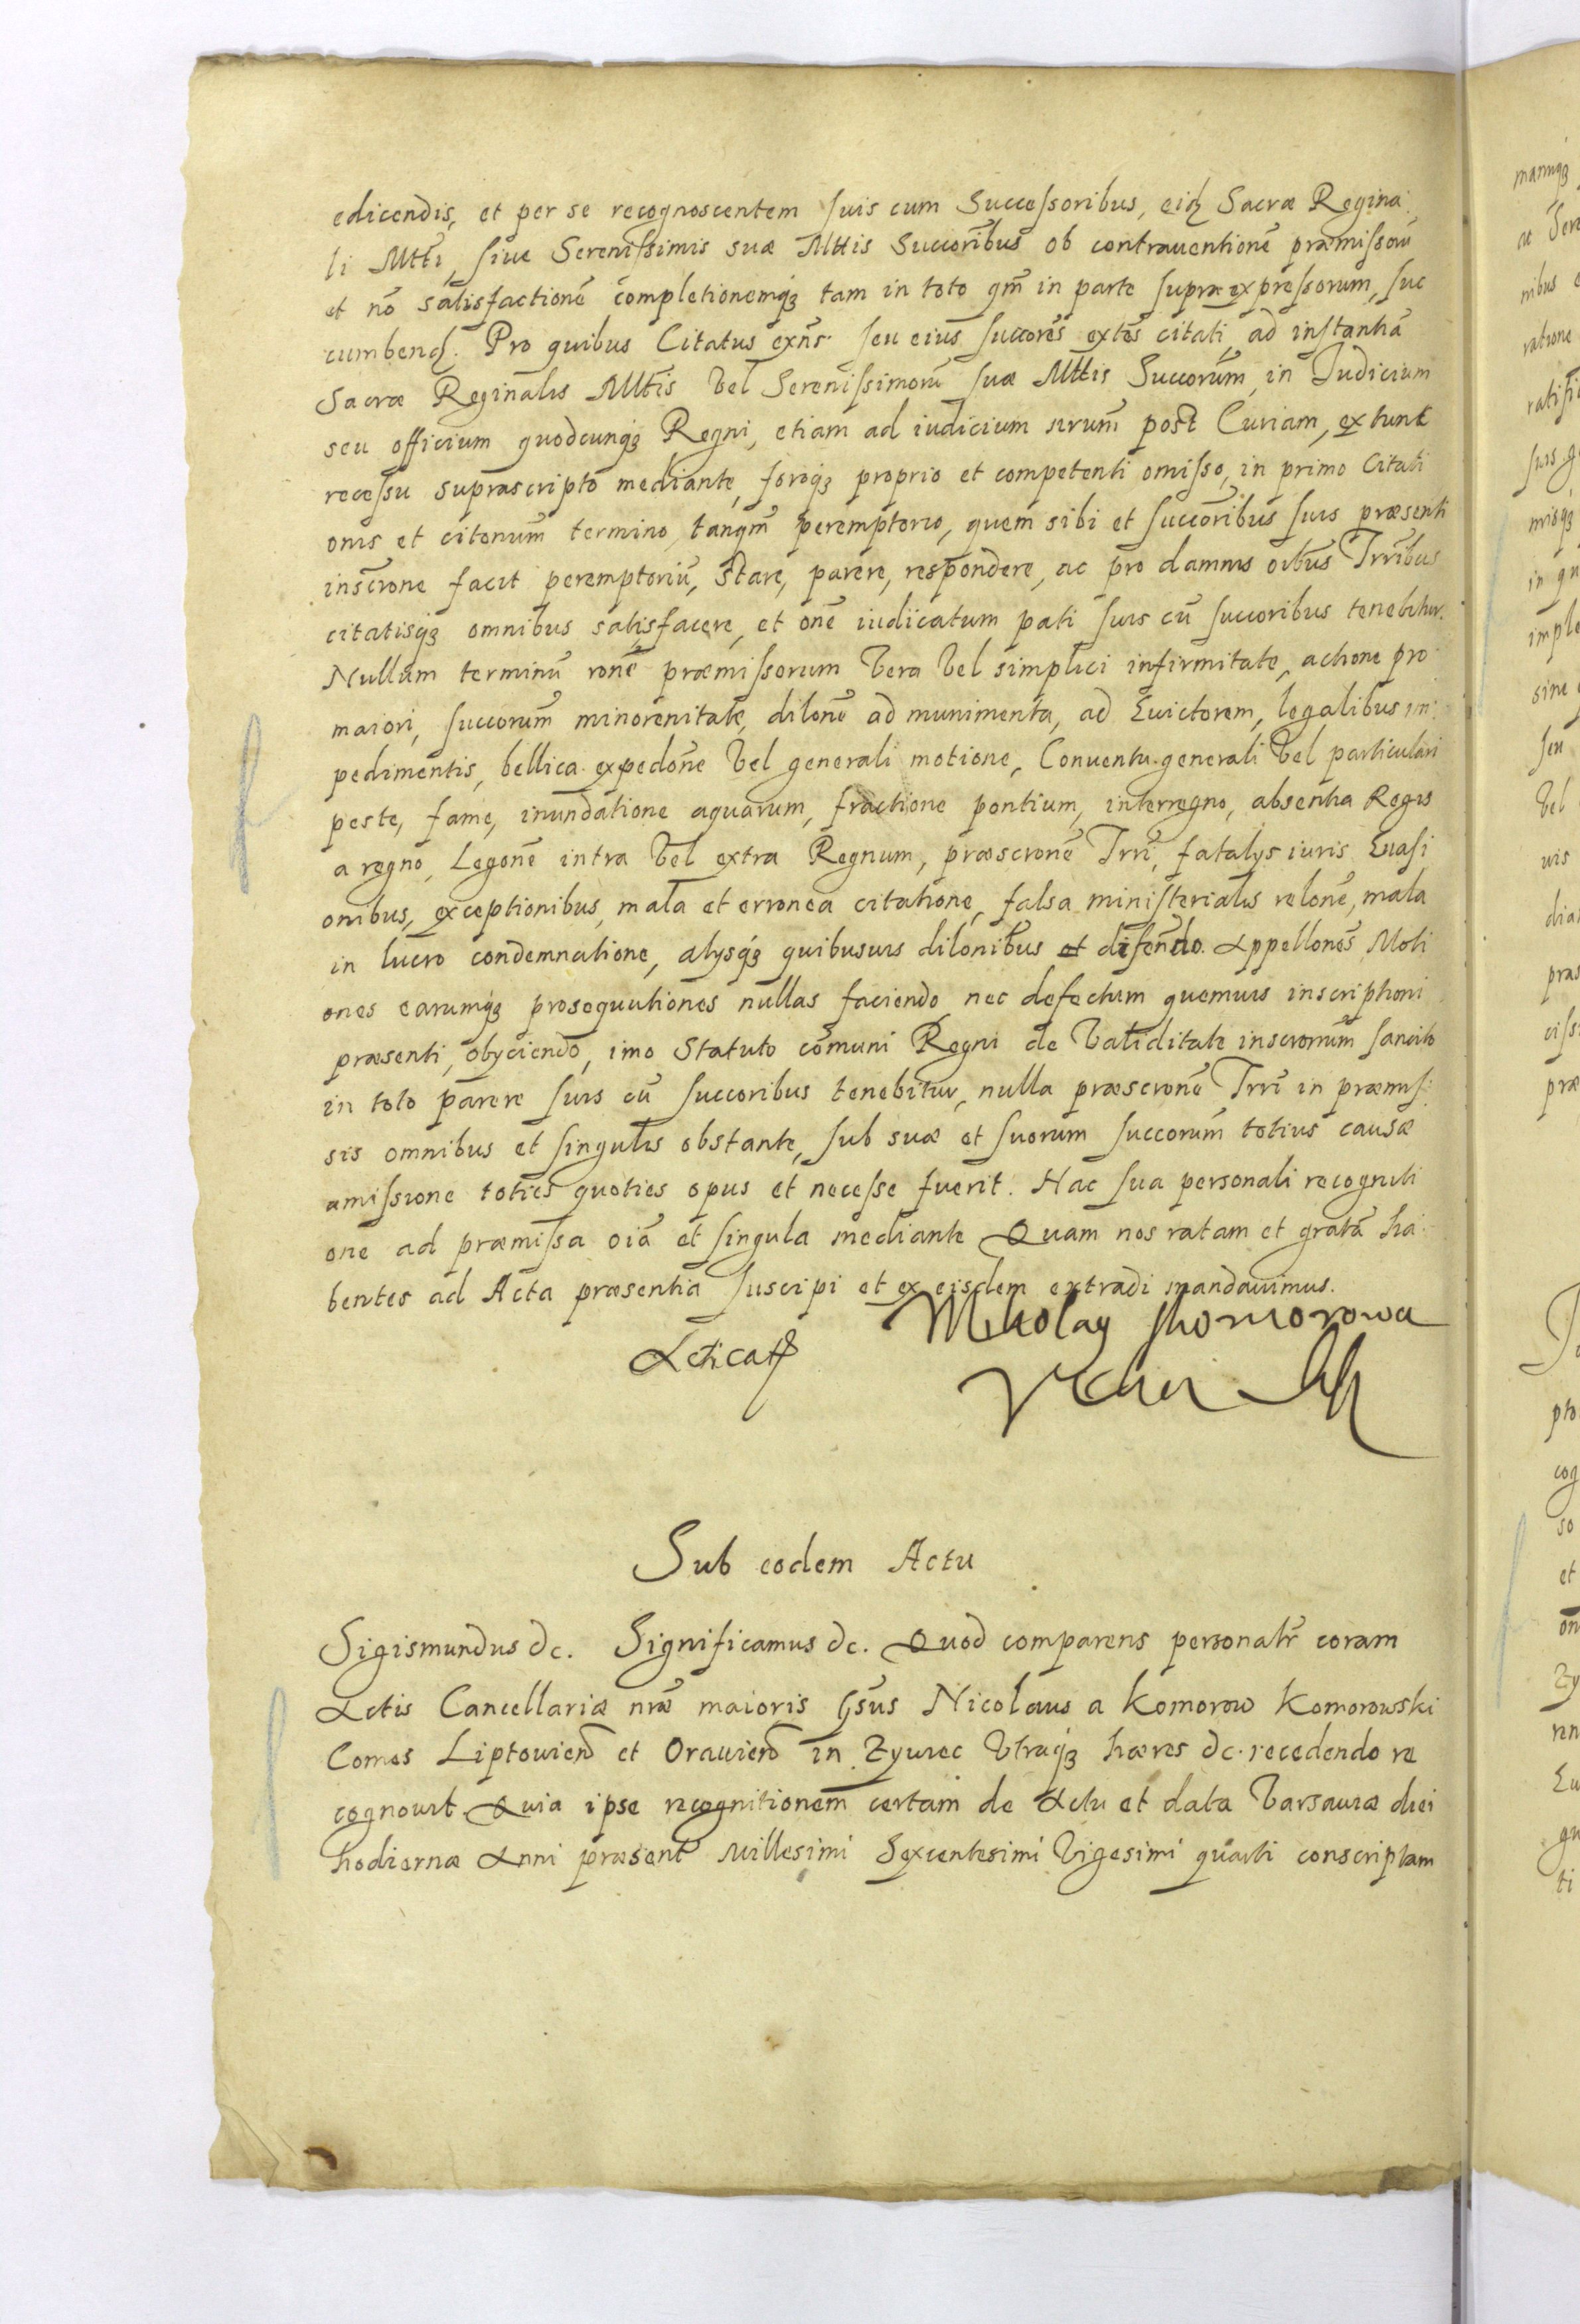 edicendis, et per se recognoscentem suis cum Successoribus, eidȝ Sacræ Regina
li Mtti, siue Serenissimis suæ Mttis Succoribus ob contrauentionē præmissorū
et nō satisfactionē completionemqȝ tam in toto qm̄ in parte supra expressorum, suc
cumbend. Pro quibus Citatus exn̄s seu eius succores extēs citati ad instantiā
Sacræ Reginalis Mttis vel Serenissimorū suæ Mttis Succorum̄, in Iudicium
seu officium quodcunqȝ Regni, etiam ad iudicium nrum̄ post Curiam, ex tunc
recessu suprascripto mediante, foroqȝ proprio et competenti omisso, in primo Citati
onis et citonum̄ termino, tanqm̄ peremptorio, quem sibi et succoribus suis præsenti
inscrone facit peremptoriū, stare, parere, respondere, ac pro damnis oibus Trribus
citatisqȝ omnibus satisfacere, et onē iudicatum pati suis cū succoribus tenebitur.
Nullum terminū ronē præmissorum vera vel simplici infirmitate, actione pro
maiori, succorum̄ minorenitate, dilonē ad munimenta, ad Euictorem, legalibus im
pedimentis, bellica expedonē vel generali motione, Conuentu generali vel particulari
peste, fame, inundatione aquarum, fractione pontium, interregno, absentia Regis
a regno, Legonē intra vel extra Regnum, præscronē Trrī, fatalys iuris Euasi
onibus, exceptionibus, mala et erronea citatione, falsa ministerialis relonē, mala
in lucro condemnatione, alysqȝ quibusuis dilonibus et difēndo. Appellones Moti
ones earumqȝ prosequutiones nullas faciendo, nec defectum quemuis inscriptioni
præsenti, obyciendo, imo Statuto cōmuni Regni de validitate inscronum̄ sancito
in toto parere suis cū succoribus tenebitur, nulla præscronē Trrī in præmis
sis omnibus et singulis obstante, sub suæ et suorum succorum̄ totius causæ
amissione toties quoties opus et necesse fuerit. Hac sua personali recogniti
one ad præmissa oiā et singula mediante Quam nos ratam et gratā ha
bentes ad Acta præsentia suscipi et ex eisdem extradi mandauimus.
Mikolay Komorowa
Acticat
Sub eodem Actu
Sigismundus &c. Significamus &c. Quod comparens personalr̄ coram
Actis Cancellariæ nræ maioris Gsūs Nicolaus a Komorow Komorowski
Comes Liptouien et Orauien in Zywiec vtraqȝ hæres &c. recedendo re
cognouit. Quia ipse recognitionem certam de Actu et data Varsauiæ diei
hodiernæ Anni præsent Millesimi Sexcentesimi Vigesimi quarti conscriptam